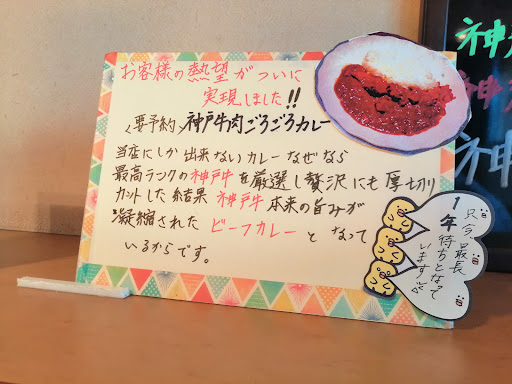 お客様の熱望がついに
実現しました!!
〈要予約〉神戸牛肉ごろごろカレー
当店にしか出来ないカレーなぜなら
最高ランクの神戸牛を厳選し贅沢にも厚切り
カットした結果 神戸牛本来の旨みが
凝縮された ビーフカレーとなって
いるからです。
只今、最長
1年待ちとなって
います
神
神
神